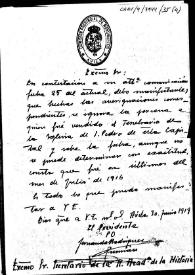 Excmo Sr:
En contestacion a su att.ª comunicación
fecha 25 del actual, debo manifestarle,
que hechas las averiguaciones corres-
pondientes, se ignora la persona a
quien fué vendido el Tenebrario de
la Iglesia de S. Pedro de esta Capi-
tal y sobre la fecha, aunque no
se puede determinar con exactitud,
consta que fué en últimos del
mes de Julio de 1916
Es todo lo que puedo manifes-
tar a V.E.
Dios gue a V.E. m.s a.s
30 junio 1919
El Presidente
P.O.
Fernando Rodríguez
Excmo Sr. Secretario de la R. Acad.ª de la Historia